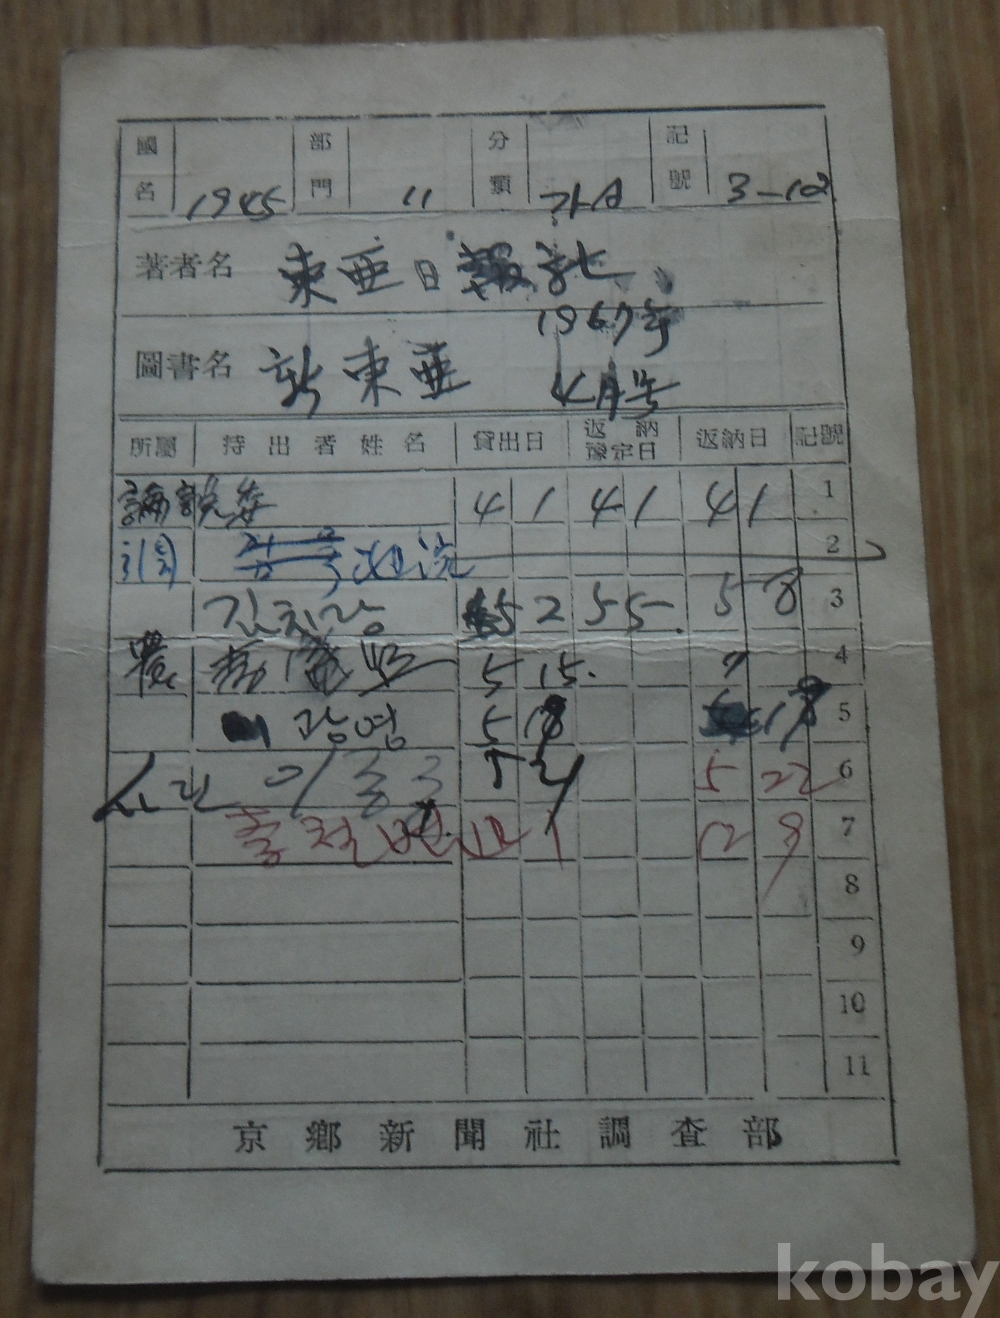 國名 1945 部門 11 分類 가A 記號 3-102
著者名 東亜日報社
1967年
圖書名 新東亜 4月号
所屬 持出者姓名 貸出日 返納豫定日 返納日 記號
論説委 4 1 4 1 4 1 1
2
김치강 5 2 5 5. 5 8 3
5 15. 4
광영 5 18 5
이종구 5 21 5 22 6
12 1 12 9 7
8
9
10
11
京鄕新聞社調査部
kobay